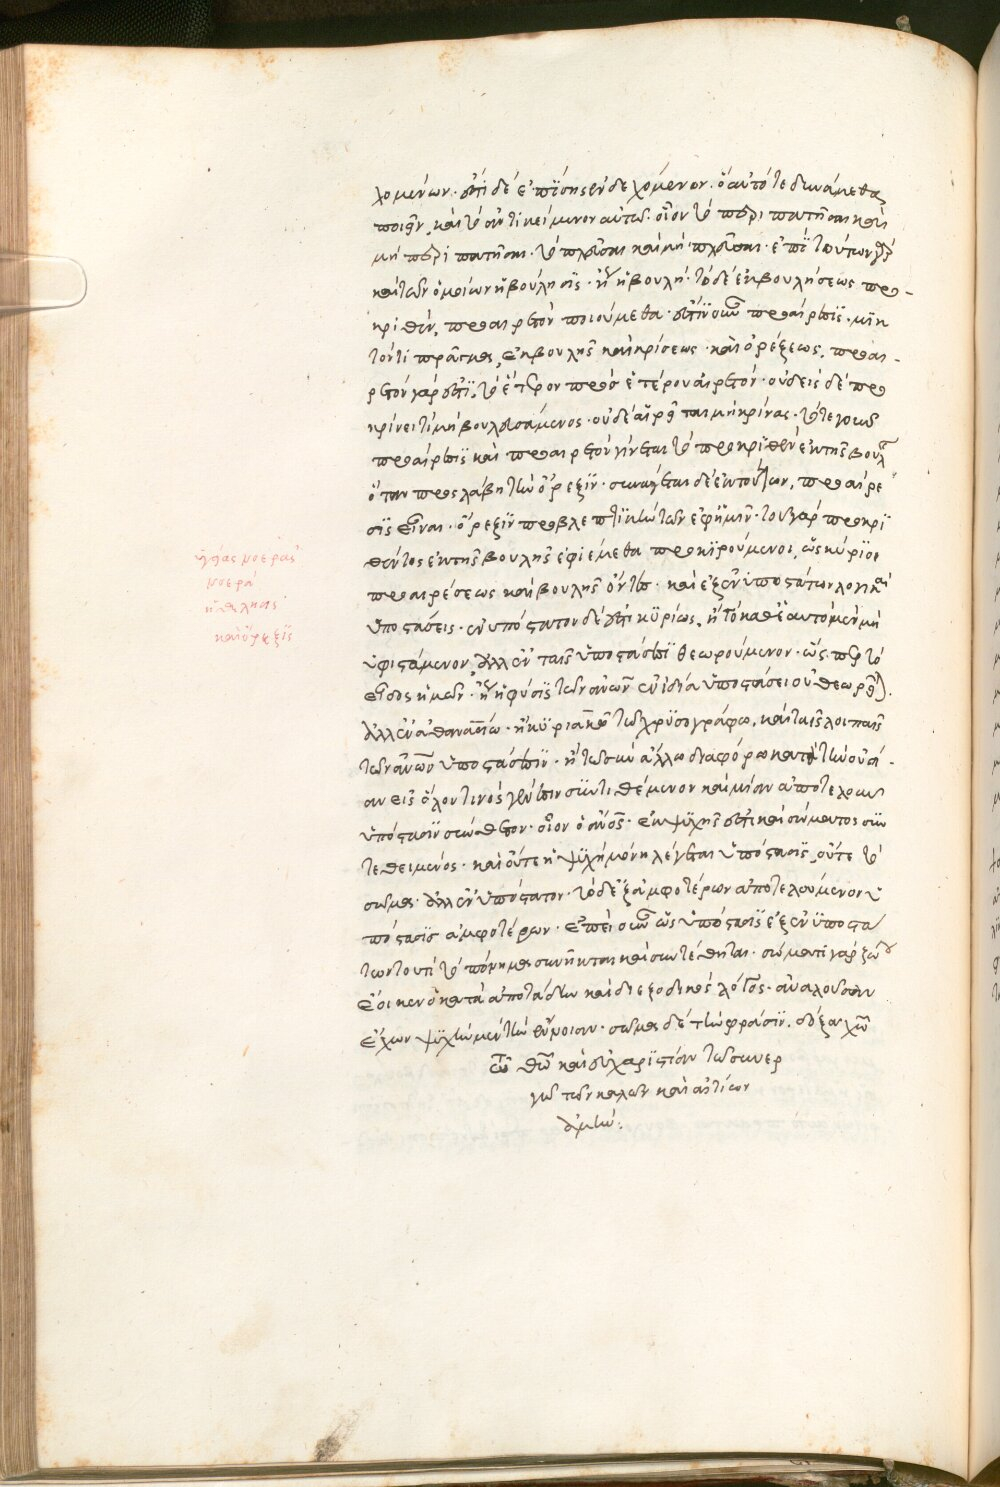 χομένων· ἔστι δὲ ἐπίσης ἐνδεχόμενον· ὃ αὐτό τε δυνάμεθα
ποιεῖν, καὶ τὸ ἀντικείμενον αὐτῶ· οἷον τὸ περιπατῆσαι καὶ
μὴ περιπατῆσαι· τὸ πλεῦσαι καὶ μὴ πλεῦσαι· ἐπὶ τούτων γὰρ
καὶ τῶν ὁμοίων ἡ βούλησις· ἢ ἡ βουλή· τὸ δὲ ἐκ βουλήσεως προ-
κριθὲν, προαιρετὸν ποιούμεθα· ἔστιν οὖν προαίρεσις· μικ
τόν τι πρᾶγμα, ἐκ βουλῆς καὶ κρίσεως· καὶ ὀρέξεως, προαι-
ρετὸν γάρ ἐστι, τὸ ἕτερον πρὸ ἑτέρου αἱρετόν· οὐδεὶς δὲ προ
κρίνει τί μὴ βουλευσάμενος· οὐδὲ αἱρεῖται μὴ κρίνας· τότε γοῦν
προαίρεσις καὶ προαιρετὸν γίνεται τὸ προκριθὲν ἐκ τῆς βουλῆς
ὅταν προσλάβη τὴν ὄρεξιν· συνάγεται δὲ ἐκ τούτων, προαίρε
σις εἶναι· ὄρεξιν προβλεπτικὴν τῶν ἐφημῖν· τοῦ γὰρ προκρι
θέντος ἐκ τῆς βουλῆς ἐφιέμεθα προκρινούμενοι, ὡς κύριοι
προαιρέσεως καὶ βουλῆς ὄντες· καὶ ἐξ ἐνυποστάτων λογικαὶ
ὑποστάσεις· ἐνυπόστατον δέ ἐστι κυρίως, ἢ τὸ καθ ἑαυτὸ μὲν μὴ
ὑφιστάμενον, ἀλλ ἐν ταῖς ὑποστάσεσι θεωρούμενον· ὥσπερ τὸ
εἶδος ἡμῶν· ἢ ἡ φύσις τῶν ἀνῶν ἐν ἰδία ὑποστάσει οὐ θεωρεῖται
ἀλλ ἐν ἀθανασίω· ἢ κυριακῶ τῶ χρυσογράφω, καὶ ταῖς λοιπαῖς
τῶν ἀνῶν ὑποστάσεσιν· ἢ τῶ σὺν ἄλλω διαφόρω κατὰ τὴν οὐσί-
αν εἰς ὅλου τινὸς γένεσιν συντιθέμενον καὶ μίαν ἀποτελοῦν
ὑπόστασιν σύνθετον· οἷον ὁ ἀνος· ἐκ ψυχῆς ἐστι καὶ σώματος συν
τεθειμένος· καὶ οὔτε ἡ ψυχὴ μόνη λέγεται ὑπόστασις, οὔτε τὸ
σῶμα· ἀλλ ἐνυπόστατον· τὸ δὲ ἐξ ἀμφοτέρων ἀποτελούμενον ὑ
πόστασις ἀμφοτέρων· ἐπεὶ οὖν ὡς ὑπόστασις ἐξ ἐνυποστά
των τουτὶ τὸ πόνημα συνῆκται καὶ συντέθηται· σώματι γὰρ ζώω
ἔοικεν ὁ κατὰ ἀποτάδην καὶ διεξοδικὸς λόγος· ἀναλογοῦσαν
ἔχων ψυχὴν μὲν τὴν εὔνοιαν· σῶμα δὲ τὴν φράσιν. δόξα χῶ
τῶ θῶ καὶ εὐχαριστίαν τῶ συνερ
γῶ τῶν καλῶν καὶ αἰτίων
ἀμήν:
νοερᾶς
νοερὰ
ἡ θέλησις
καὶ ὄρεξις